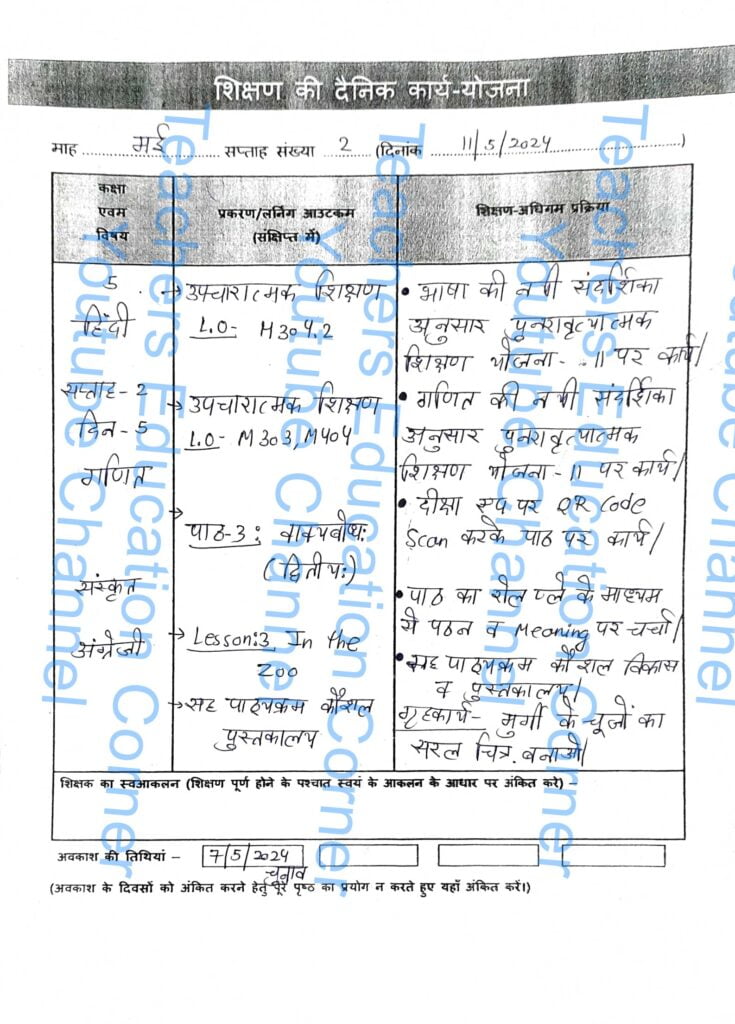 शिक्षण की दैनिक कार्य-योजना
माह मई सप्ताह संख्या 2 (दिनांक 11/5/2024)
कक्षा
एवम
विषय
प्रकरण/लर्निग आउटकम
(संक्षिप्त में)
शिक्षण-अधिगम प्रक्रिया
5
हिंदी
सप्ताह-2
दिन-5
गणित
संस्कृत
अंग्रेजी
→ उपचारात्मक शिक्षण
L.O- H304.2
→ उपचारात्मक शिक्षण
L.O- M303, M404
→ पाठ-3: वाक्यबोधः
(द्वितीयः)
→ Lesson:3 In the
Zoo
→ सह पाठ्यक्रम कौशल
पुस्तकालय
• भाषा की नयी संदर्शिका
अनुसार पुनरावृत्यात्मक
शिक्षण योजना-..11 पर कार्य।
• गणित की नयी संदर्शिका
अनुसार पुनरावृत्यात्मक
शिक्षण योजना-11 पर कार्य।
• दीक्षा एप पर QR Code
Scan करके पाठ पर कार्य।
• पाठ का रोल प्ले के माध्यम
से पठन व Meaning पर चर्चा।
• सह पाठ्यक्रम कौशल विकास
व पुस्तकालय।
गृहकार्य- मुर्गी के चूजों का
सरल चित्र बनाओ।
शिक्षक का स्वआकलन (शिक्षण पूर्ण होने के पश्चात स्वयं के आकलन के आधार पर अंकित करे) –
अवकाश की तिथियां – 7/5/2024
चुनाव
(अवकाश के दिवसों को अंकित करने हेतु पूरे पृष्ठ का प्रयोग न करते हुए यहाँ अंकित करें।)
Teachers Education Corner
Youtube Channel
Teachers Education Corner
Youtube Channel
Teachers Education Corner
Youtube Channel